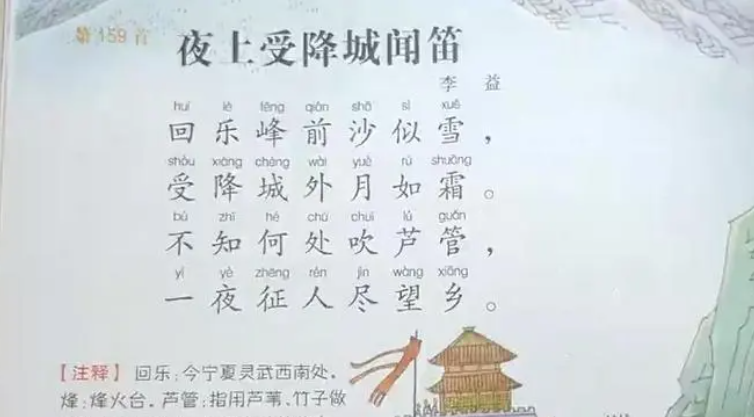 第159首
夜上受降城闻笛
李 益
huí lè fēng qián shā sì xuě
回乐峰前沙似雪，
shòu xiáng chéng wài yuè rú shuāng
受降城外月如霜。
bù zhī hé chù chuī lú guǎn
不知何处吹芦管，
yí yè zhēng rén jìn wàng xiāng
一夜征人尽望乡。
【注释】回乐：今宁夏灵武西南处。
烽：烽火台。芦管：指用芦苇、竹子做